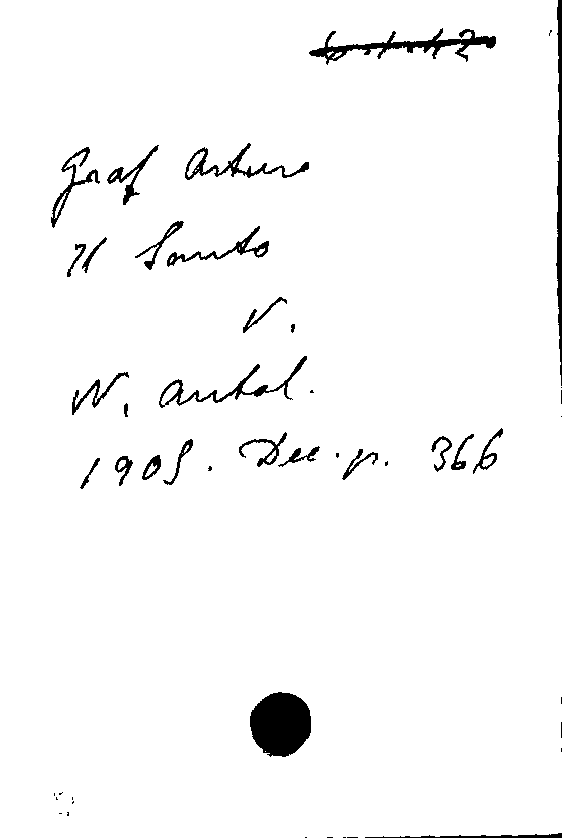 Graf Arturo
Il Santo
V.
N. Antol.
1905. Dec. p. 366